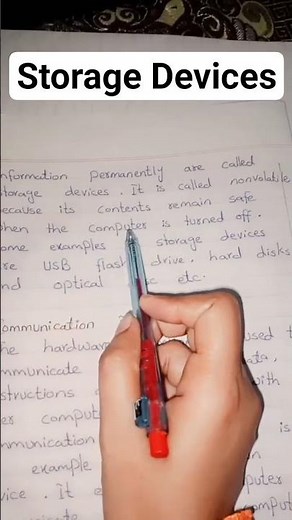 Storage Devices
nformation permanently are called
torage devices. It is called nonvolatile
ecause its contents remain safe
hen the computer is turned off.
ome examples storage devices
re USB flas drive, hard disks
nd optical etc.
ommunication
he hardwar used t
mmunicate ata,
structions with
er comput
mmunication is
example n
vice. It puter
comput